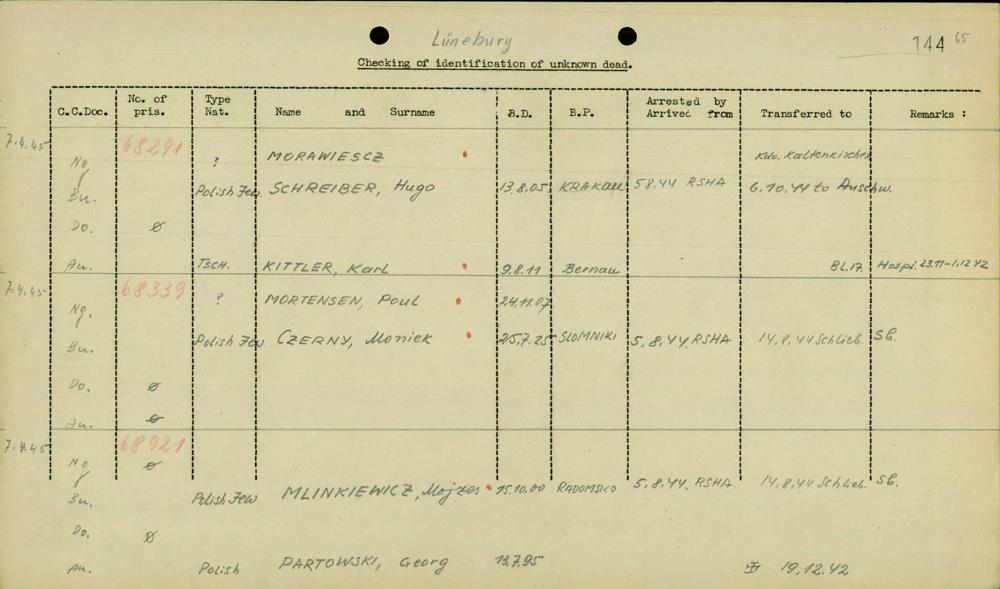 Lüneburg
144 65
Checking of identification of unknown dead.
C.C.Doc. No. of pris. Type Nat. Name and Surname B.D. B.P. Arrested by Arrived from Transferred to Remarks :
7.4.45 68291
Ng ? MORAWIESCZ Kdo. Kaltenkirchen
Bu. Polish Jew. SCHREIBER, Hugo 13.8.05 KRAKAU 5 8.44 RSHA 6.10.44 to Auschw.
Do. ø
Au. TSCH. KITTLER, Karl 9.8.11 Bernau BL.17. Hospi. 23.11-1.12 42
7.4.45 68339
Ng. ? MORTENSEN, Poul 24.11.07
Bu. Polish Jew CZERNY, Moniek 25.7.25 SLOMNIKI 5.8.44. RSHA 14.8.44 Schlieb. Sb.
Do. ø
Au. ø
7.4.45 68921
Ng ø
Bu. Polish Jew MLINKIEWICZ, Mojzes 15.10.00 RADOMSKO 5.8.44. RSHA. 14.8.44 Schlieb. Sb.
Do. ø
Au. Polish PARTOWSKI, Georg 13.7.95 19.12.42